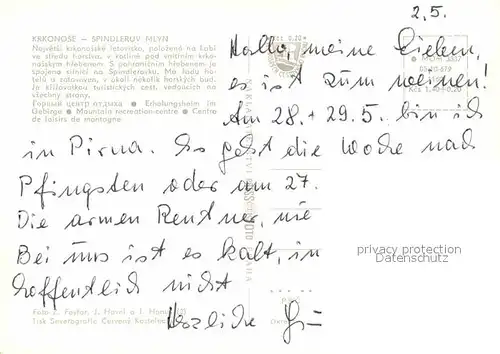 2.5.
KRKONOŠE – SPINDLERUV MLYN
Největší krkonošské letovisko, položené na Labi
ve středu horstva, v kotlině pod vnitřním krko-
nošským hřebenem. S pohraničním hřebenem je
spojeno silnicí na Špindlerovku. Má řadu ho-
telů a zotaven, v okolí několik horských bud.
Je křižovatkou turistických cest, vedoucích na
všechny strany.
Горный центр отдыха ● Erholungsheim im
Gebirge ● Mountain recreation-centre ● Centre
de loisirs de montagne
Hallo meine Lieben,
es ist zum weinen!
Am 28. + 29.5. bin ich
in Pirna. So geht die Woche nach
Pfingsten oder am 27.
Die armen Rentner, nie
Bei uns ist es kalt, in
hoffentlich nicht
Herzliche
privacy protection
Datenschutz
Foto J. Havel a I.
Tisk Severografie Červený Kostelec